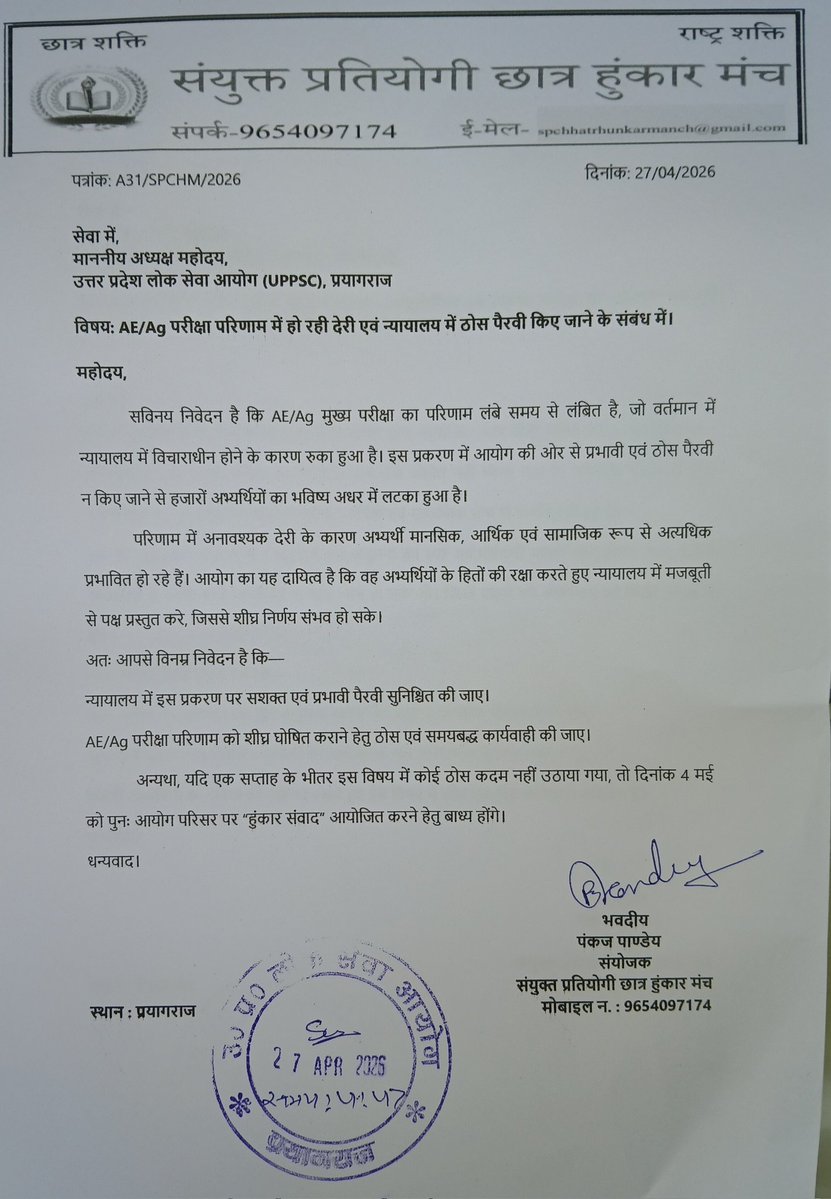 छात्र शक्ति
राष्ट्र शक्ति
संयुक्त प्रतियोगी छात्र हुंकार मंच
संपर्क-9654097174
ई-मेल- spchhatrhunkarmanch@gmail.com
पत्रांक: A31/SPCHM/2026
दिनांक: 27/04/2026
सेवा में,
माननीय अध्यक्ष महोदय,
उत्तर प्रदेश लोक सेवा आयोग (UPPSC), प्रयागराज
विषय: AE/Ag परीक्षा परिणाम में हो रही देरी एवं न्यायालय में ठोस पैरवी किए जाने के संबंध में।
महोदय,
सविनय निवेदन है कि AE/Ag मुख्य परीक्षा का परिणाम लंबे समय से लंबित है, जो वर्तमान में
न्यायालय में विचाराधीन होने के कारण रुका हुआ है। इस प्रकरण में आयोग की ओर से प्रभावी एवं ठोस पैरवी
न किए जाने से हजारों अभ्यर्थियों का भविष्य अधर में लटका हुआ है।
परिणाम में अनावश्यक देरी के कारण अभ्यर्थी मानसिक, आर्थिक एवं सामाजिक रूप से अत्यधिक
प्रभावित हो रहे हैं। आयोग का यह दायित्व है कि वह अभ्यर्थियों के हितों की रक्षा करते हुए न्यायालय में मजबूती
से पक्ष प्रस्तुत करे, जिससे शीघ्र निर्णय संभव हो सके।
अतः आपसे विनम्र निवेदन है कि—
न्यायालय में इस प्रकरण पर सशक्त एवं प्रभावी पैरवी सुनिश्चित की जाए।
AE/Ag परीक्षा परिणाम को शीघ्र घोषित कराने हेतु ठोस एवं समयबद्ध कार्यवाही की जाए।
अन्यथा, यदि एक सप्ताह के भीतर इस विषय में कोई ठोस कदम नहीं उठाया गया, तो दिनांक 4 मई
को पुनः आयोग परिसर पर “हुंकार संवाद” आयोजित करने हेतु बाध्य होंगे।
धन्यवाद।
भवदीय
पंकज पाण्डेय
संयोजक
संयुक्त प्रतियोगी छात्र हुंकार मंच
मोबाइल न. : 9654097174
स्थान : प्रयागराज
उ० प्र० लो सेवा आयोग
27 APR 2026
प्रयागराज